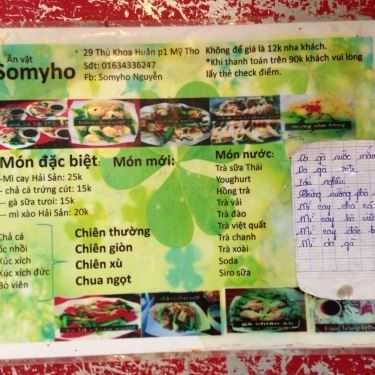 Ăn vặt
Somyho
* 29 Thủ Khoa Huân p1 Mỹ Tho
Sđt: 01634336247
Fb: Somyho Nguyễn
Không để giá là 12k nha khách.
*Khi thanh toán trên 90k khách vui lòng
lấy thẻ check điểm.
Món đặc biệt:
-Mì cay Hải Sản: 25k
- chả cá trứng cút: 15k
- gà sữa tươi: 15k
- mì xào Hải Sản: 20k
Món mới:
Món nước:
Trà sữa Thái
Youghurt
Hồng trà
Trà vải
Trà đào
Trà việt quất
Trà chanh
Trà xoài
Soda
Siro sữa
Chả cá
ốc nhồi
Xúc xích
Xúc xích đức
Bò viên
Chiên thường
Chiên giòn
Chiên xù
Chua ngọt
gà nước mắm
gà
Mì cay
Mì cay bò
Mì cay
Mì